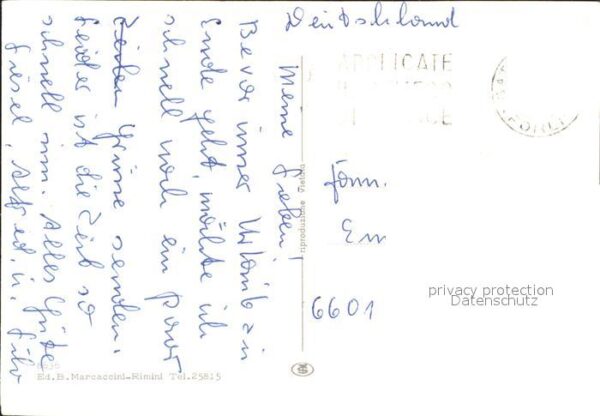 Deutschland
Meine Lieben!
Bevor unser Urlaub zu
Ende geht, möchte ich
schnell noch ein paar
Zeilen Grüsse senden.
Leider ist die Zeit so
schnell um. Alles Gute
Alfred u.
APPLICATE
Fam.
Em
6601
riproduzione vietata
privacy protection
Datenschutz
Ed.B. Marcaccini-Rimini Tel.25815